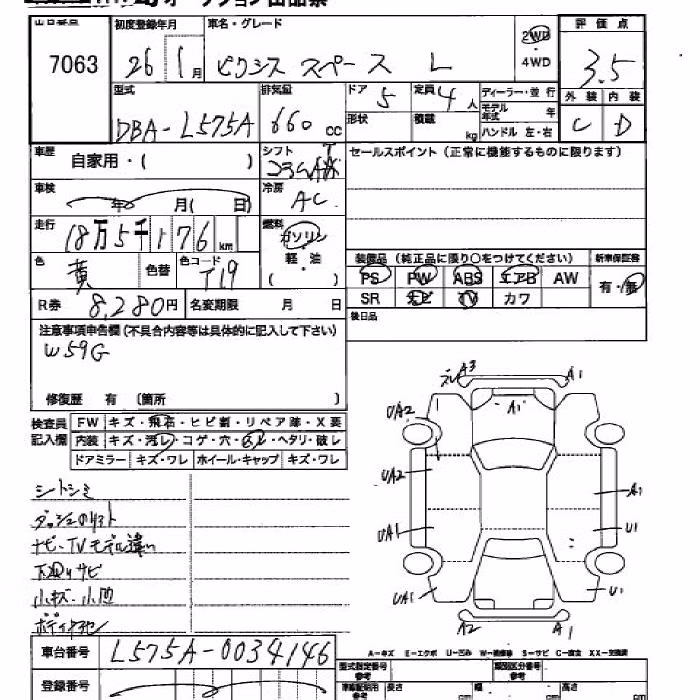 オークション出品票
出品番号 初度登録年月 車名・グレード 2WD ・ 4WD 評価点
7063 26 1月 ピクシス スペース L 3.5
型式 排気量 ドア 5 定員 4人 ディーラー・並行 外装 内装
DBA-L575A 660cc 形状 積載 kg モデル年式 年 C D
ハンドル 左・右
車歴 自家用・( ) シフト セールスポイント(正常に機能するものに限ります)
車検 年 月( 日) 冷房 AC
走行 18万5千176km 燃料 ガソリン・軽・油 ( )
色 黄 色替 色コード T19
装備品(純正品に限り○をつけてください) 新車保証書
PS PW ABS エアB AW 有・無
SR ナビ TV カワ
R券 8,280円 名変期限 月 日 後日品
注意事項申告欄(不具合内容等は具体的に記入して下さい)
W59G
修復歴 有 〔箇所 〕
検査員記入欄 FW キズ・飛石・ヒビ割・リペア跡・X要
内装 キズ・汚レ・コゲ・穴・スレ・ヘタリ・破レ
ドアミラー キズ・ワレ ホイール・キャップ キズ・ワレ
シートシミ
ナビ・TVモデル違い
下廻りサビ
小キズ・小凹
A3 A1
A1
UA2
UA2 A1
UA1 U1
UA1 U1
A2 A1
A-キズ E-エクボ U-凹み W-補修跡 S-サビ C-腐食 XX-交換済
車台番号 L575A-0034146
型式指定番号 参考 類別区分番号 参考
登録番号 長さ cm 幅 cm 高さ cm